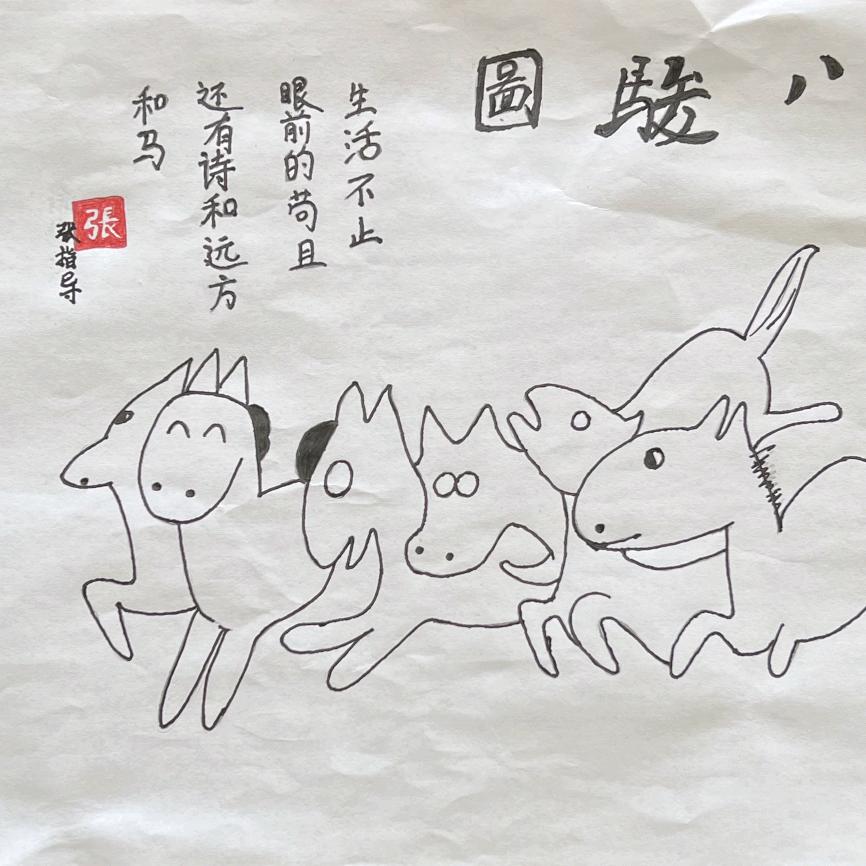 八駿圖
生活不止
眼前的苟且
还有诗和远方
和马
張
张指导